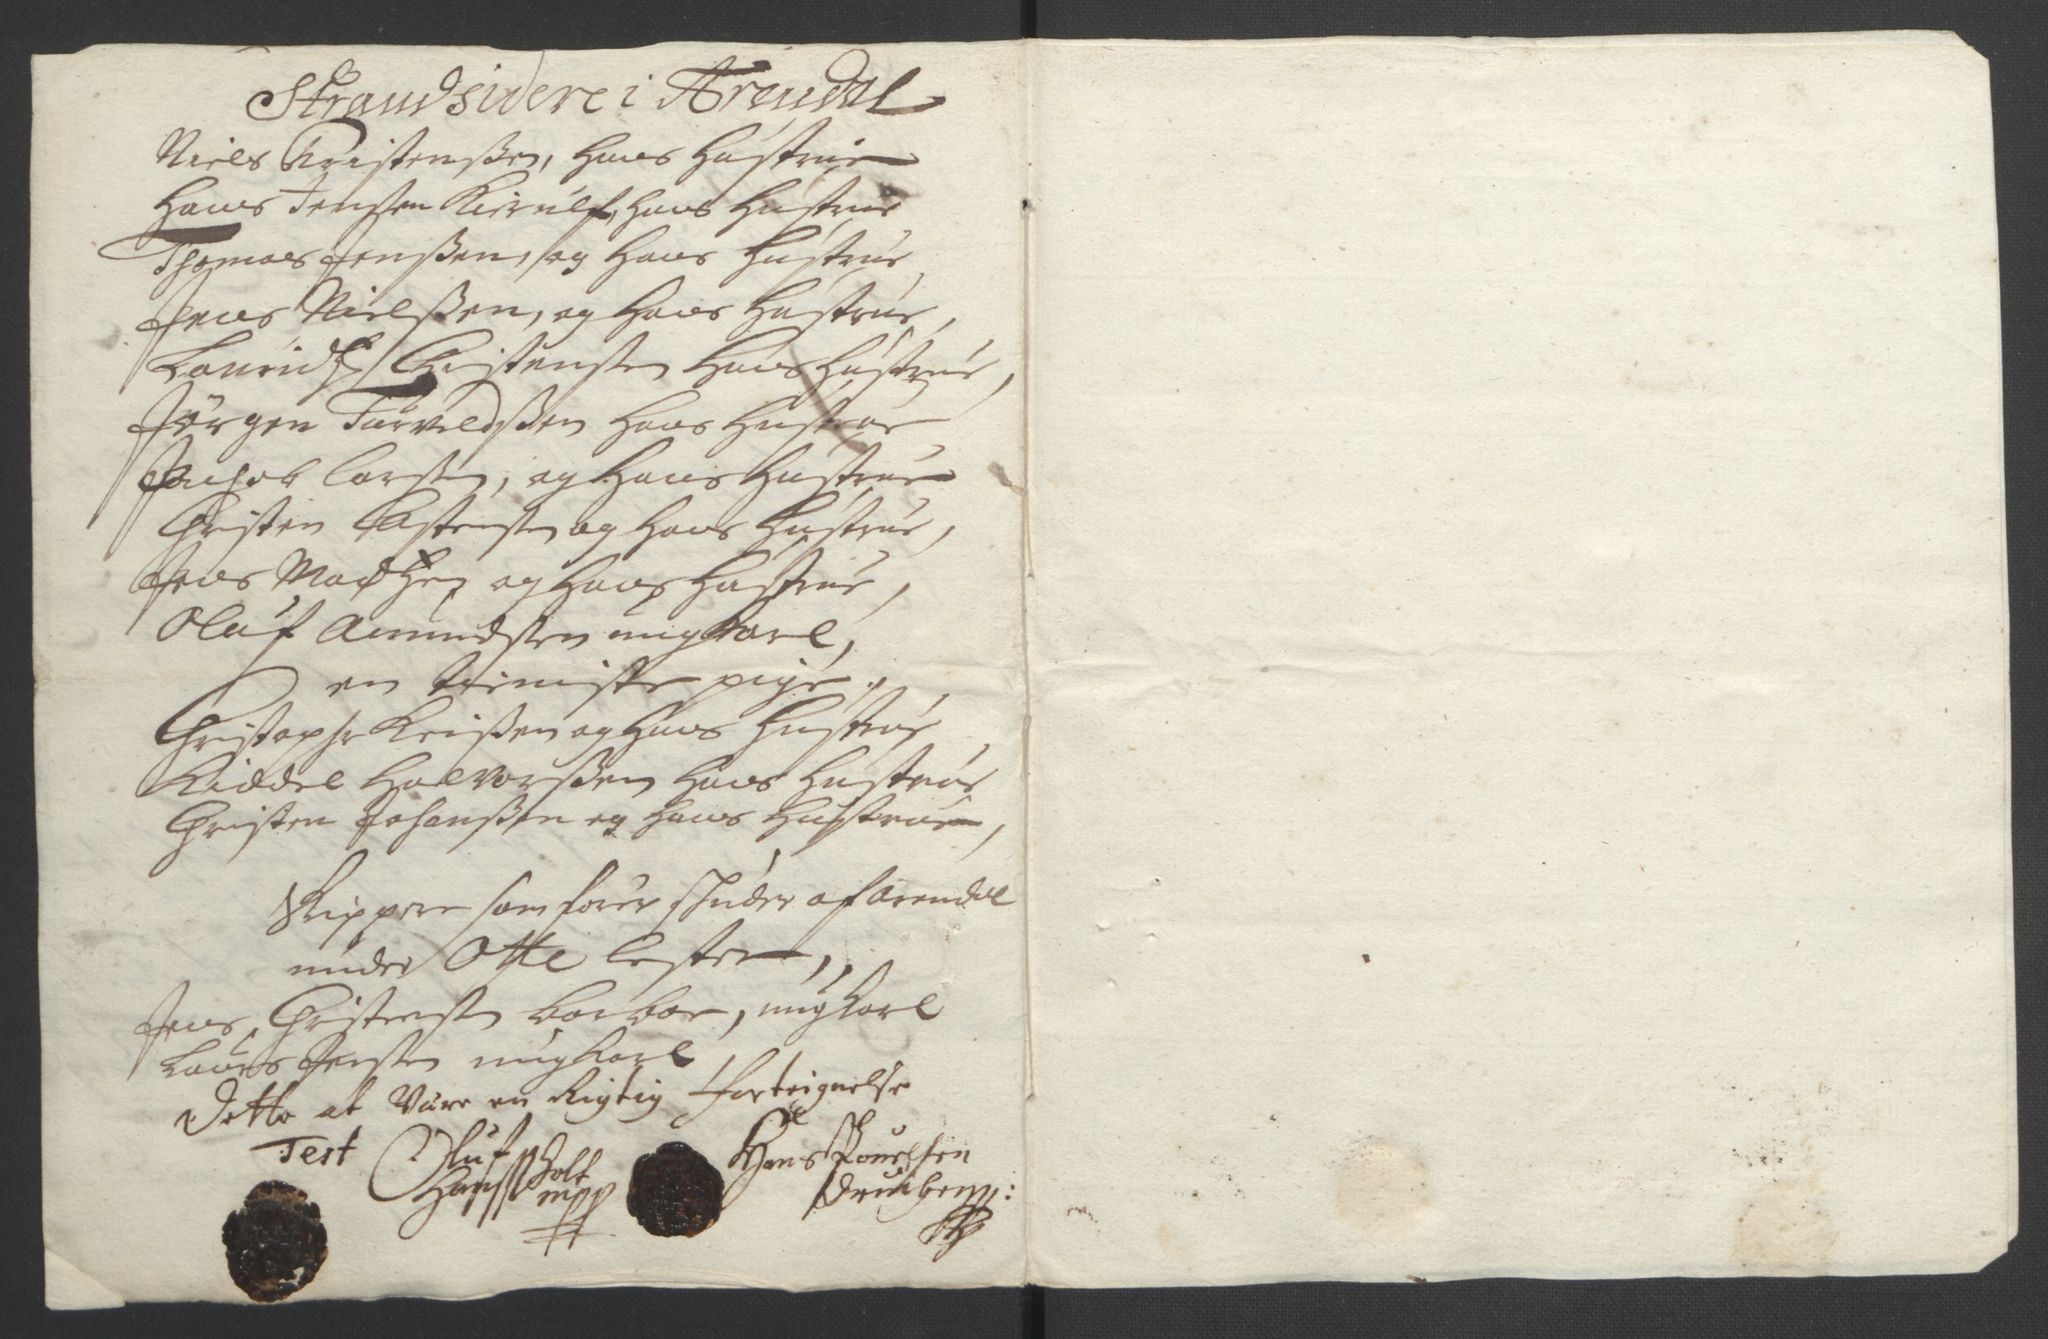 Strandsidere i Arendal
Niels Christenssen, hans hustrue
Hans Jensen Kierulf, hans hustrue
Thomas Jenssen, og hans hustrue
Jens Nielssen, og hans hustrue,
Lauridtz Christensen hans hustrue,
Jørgen hans hustrue
Jachob Larsen, og hans hustrue
Christen og hans hustrue,
Jens Madtzen og hans hustrue,
Oluf Amundsen ungkarl,
en pige,
Christopher og hans hustrue
Kiddel Halvorssen hans hustrue
Christen Johanssen og hans hustrue,
Skippere som fører Skuder af Arendal
under Otte lester,
Jens Christensen ungkarl
Laurs Jensen ungkarl
Dette at Være en Rigtig forteignelse
Test Oluf Hanss Holt mpp
Hans Pouelsen